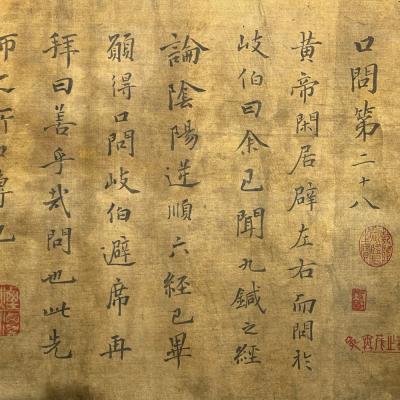 口問第二十八
黃帝閑居辟左右而問於
岐伯曰余已聞九鍼之經
論陰陽逆順六經已畢
願得口問岐伯避席再
拜曰善乎哉問也此先
師之所口傳也